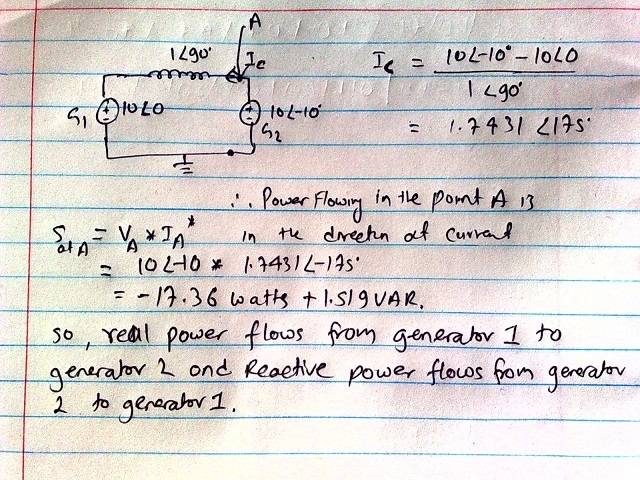 A
1∠90° Ic
G1 10∠0 10∠-10°
G2
Ic = 10∠-10° - 10∠0
1∠90°
= 1.7431 ∠175°
∴ Power Flowing in the point A is
S at A = VA * IA* in the direction of current
= 10∠-10 * 1.7431∠-175°
= -17.36 watts + 1.519VAR.
so, real power flows from generator 1 to
generator 2 and Reactive power flows from generator
2 to generator 1.